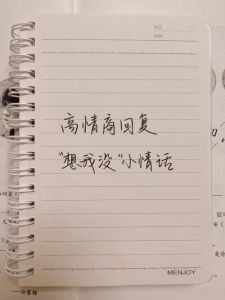 NO.
Date
高情商回复
“想我没”小情话
MENJOY